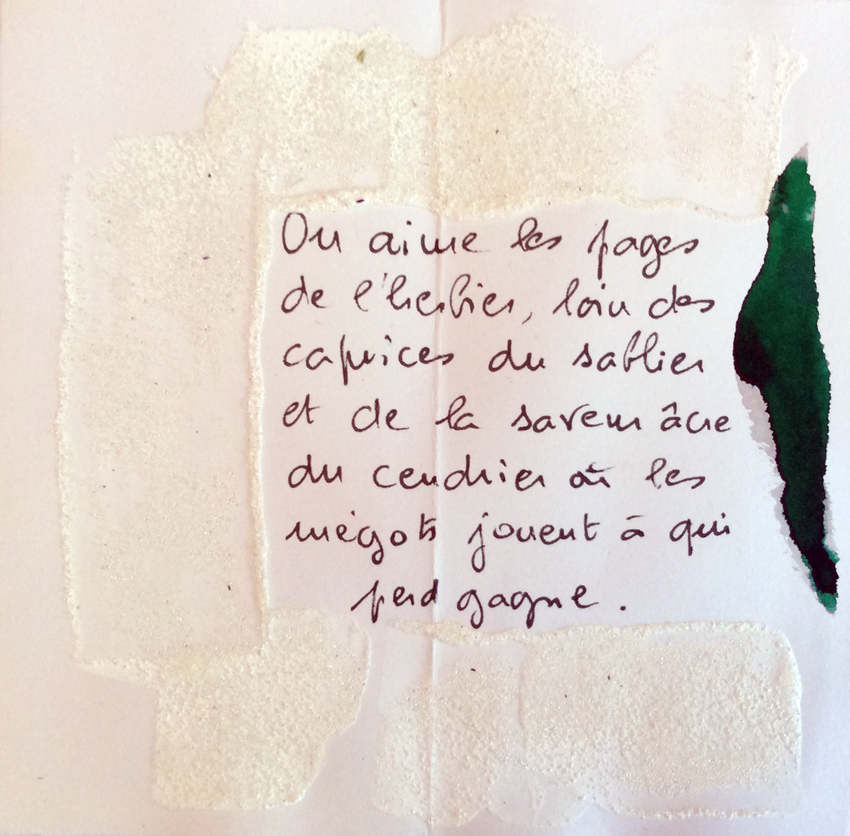 On aime les pages
de l'herbier, loin des
caprices du sablier
et de la saveur âcre
du cendrier où les
mégots jouent à qui
perd gagne.